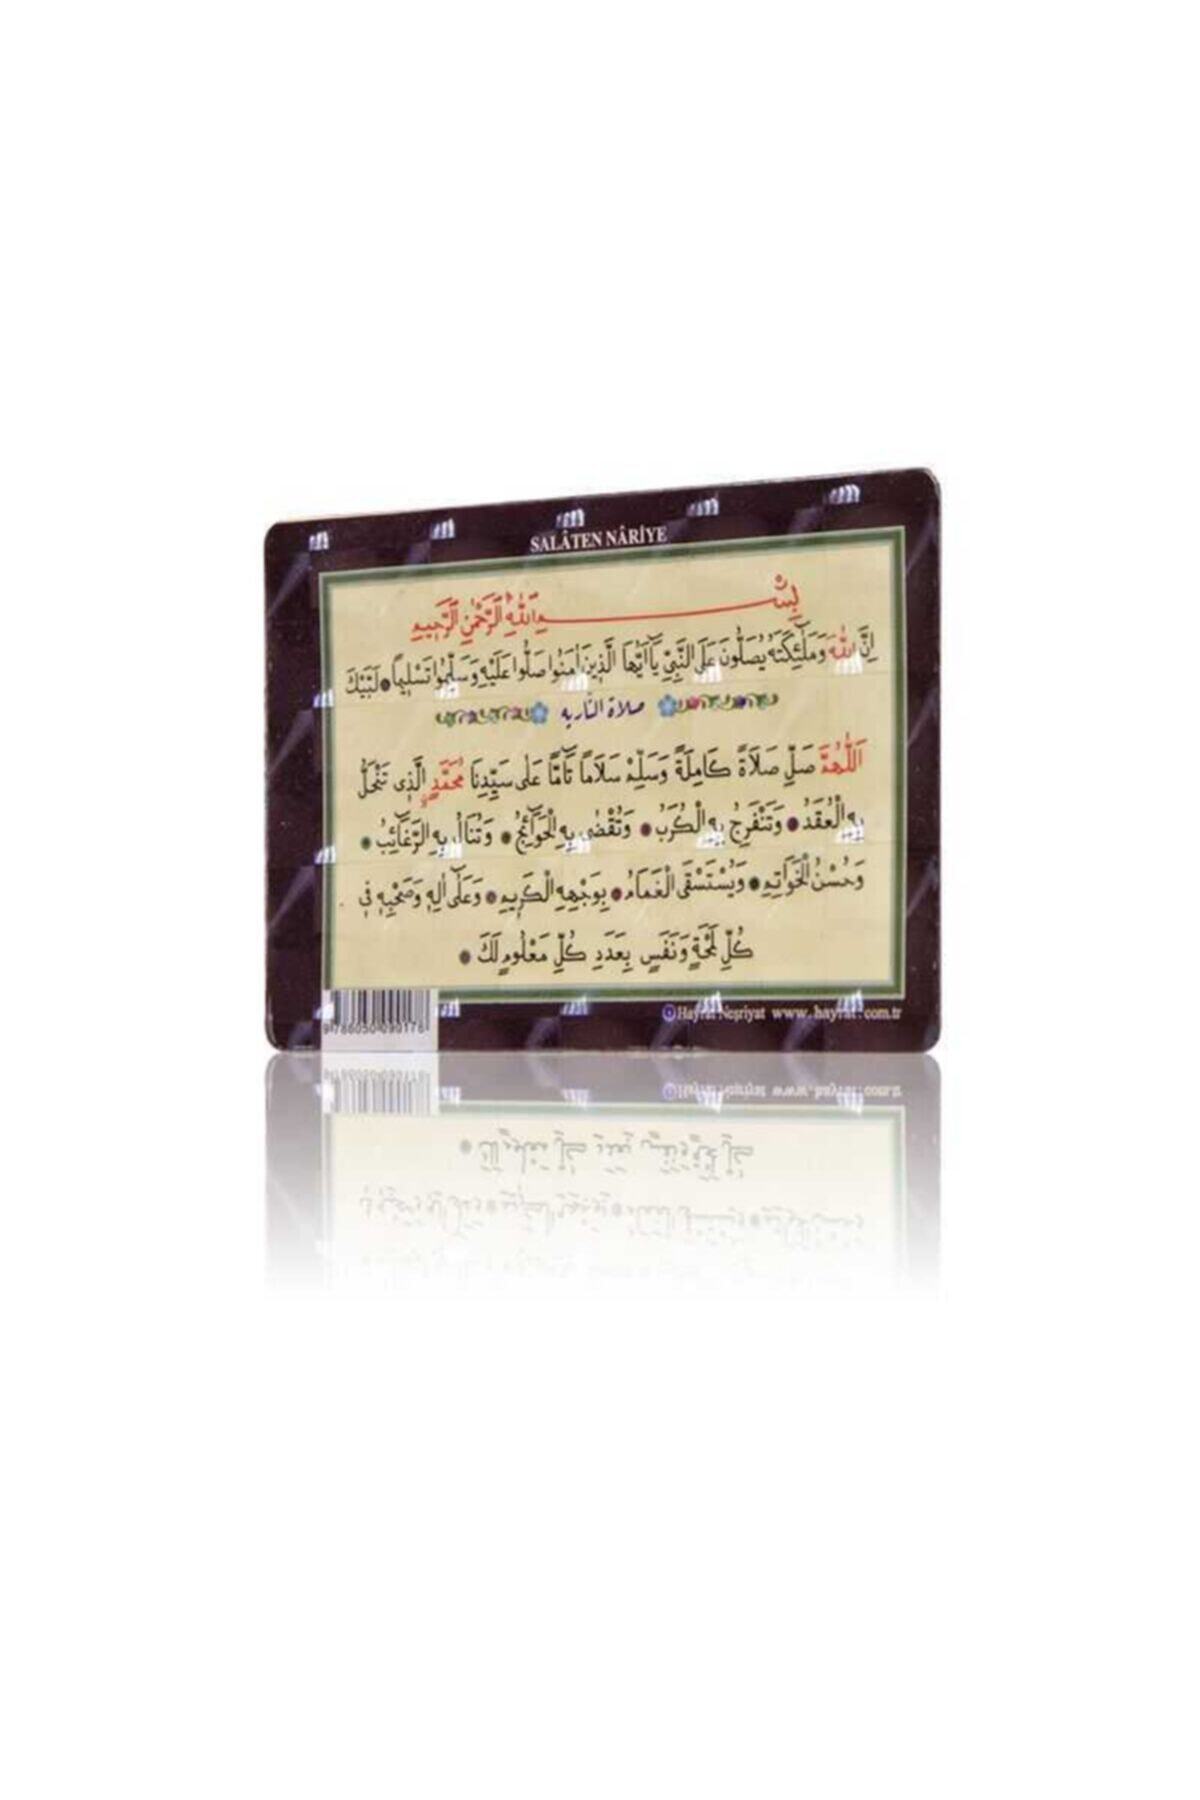 SALÂTEN NÂRİYE
بِسْــــــــمِ اللّٰهِ الرَّحْمٰنِ الرَّحِيمِ
اِنَّ اللّٰهَ وَمَلٰٓئِكَتَهُ يُصَلُّونَ عَلَى النَّبِيِّ يَٓا اَيُّهَا الَّذِينَ اٰمَنُوا صَلُّوا عَلَيْهِ وَسَلِّمُوا تَسْلِيمًا ● لَبَّيْكَ
صلاة الناريه
اَللّٰهُمَّ صَلِّ صَلَاةً كَامِلَةً وَسَلِّمْ سَلَامًا تَٓامًّا عَلٰى سَيِّدِنَا مُحَمَّدٍ الَّذِى تَنْحَلُّ
بِهِ الْعُقَدُ ● وَتَنْفَرِجُ بِهِ الْكُرَبُ ● وَتُقْضٰى بِهِ الْحَوَٓائِجُ ● وَتُنَالُ بِهِ الرَّغَٓائِبُ ●
وَحُسْنُ الْخَوَاتِمِ ● وَيُسْتَسْقَى الْغَمَامُ ● بِوَجْهِهِ الْكَرِيمِ ● وَعَلٰٓى اٰلِهِ وَصَحْبِهِ فِى
كُلِّ لَمْحَةٍ وَنَفَسٍ بِعَدَدِ كُلِّ مَعْلُومٍ لَكَ ●
9 786050 090178
Hayrat Neşriyat www.hayrat.com.tr